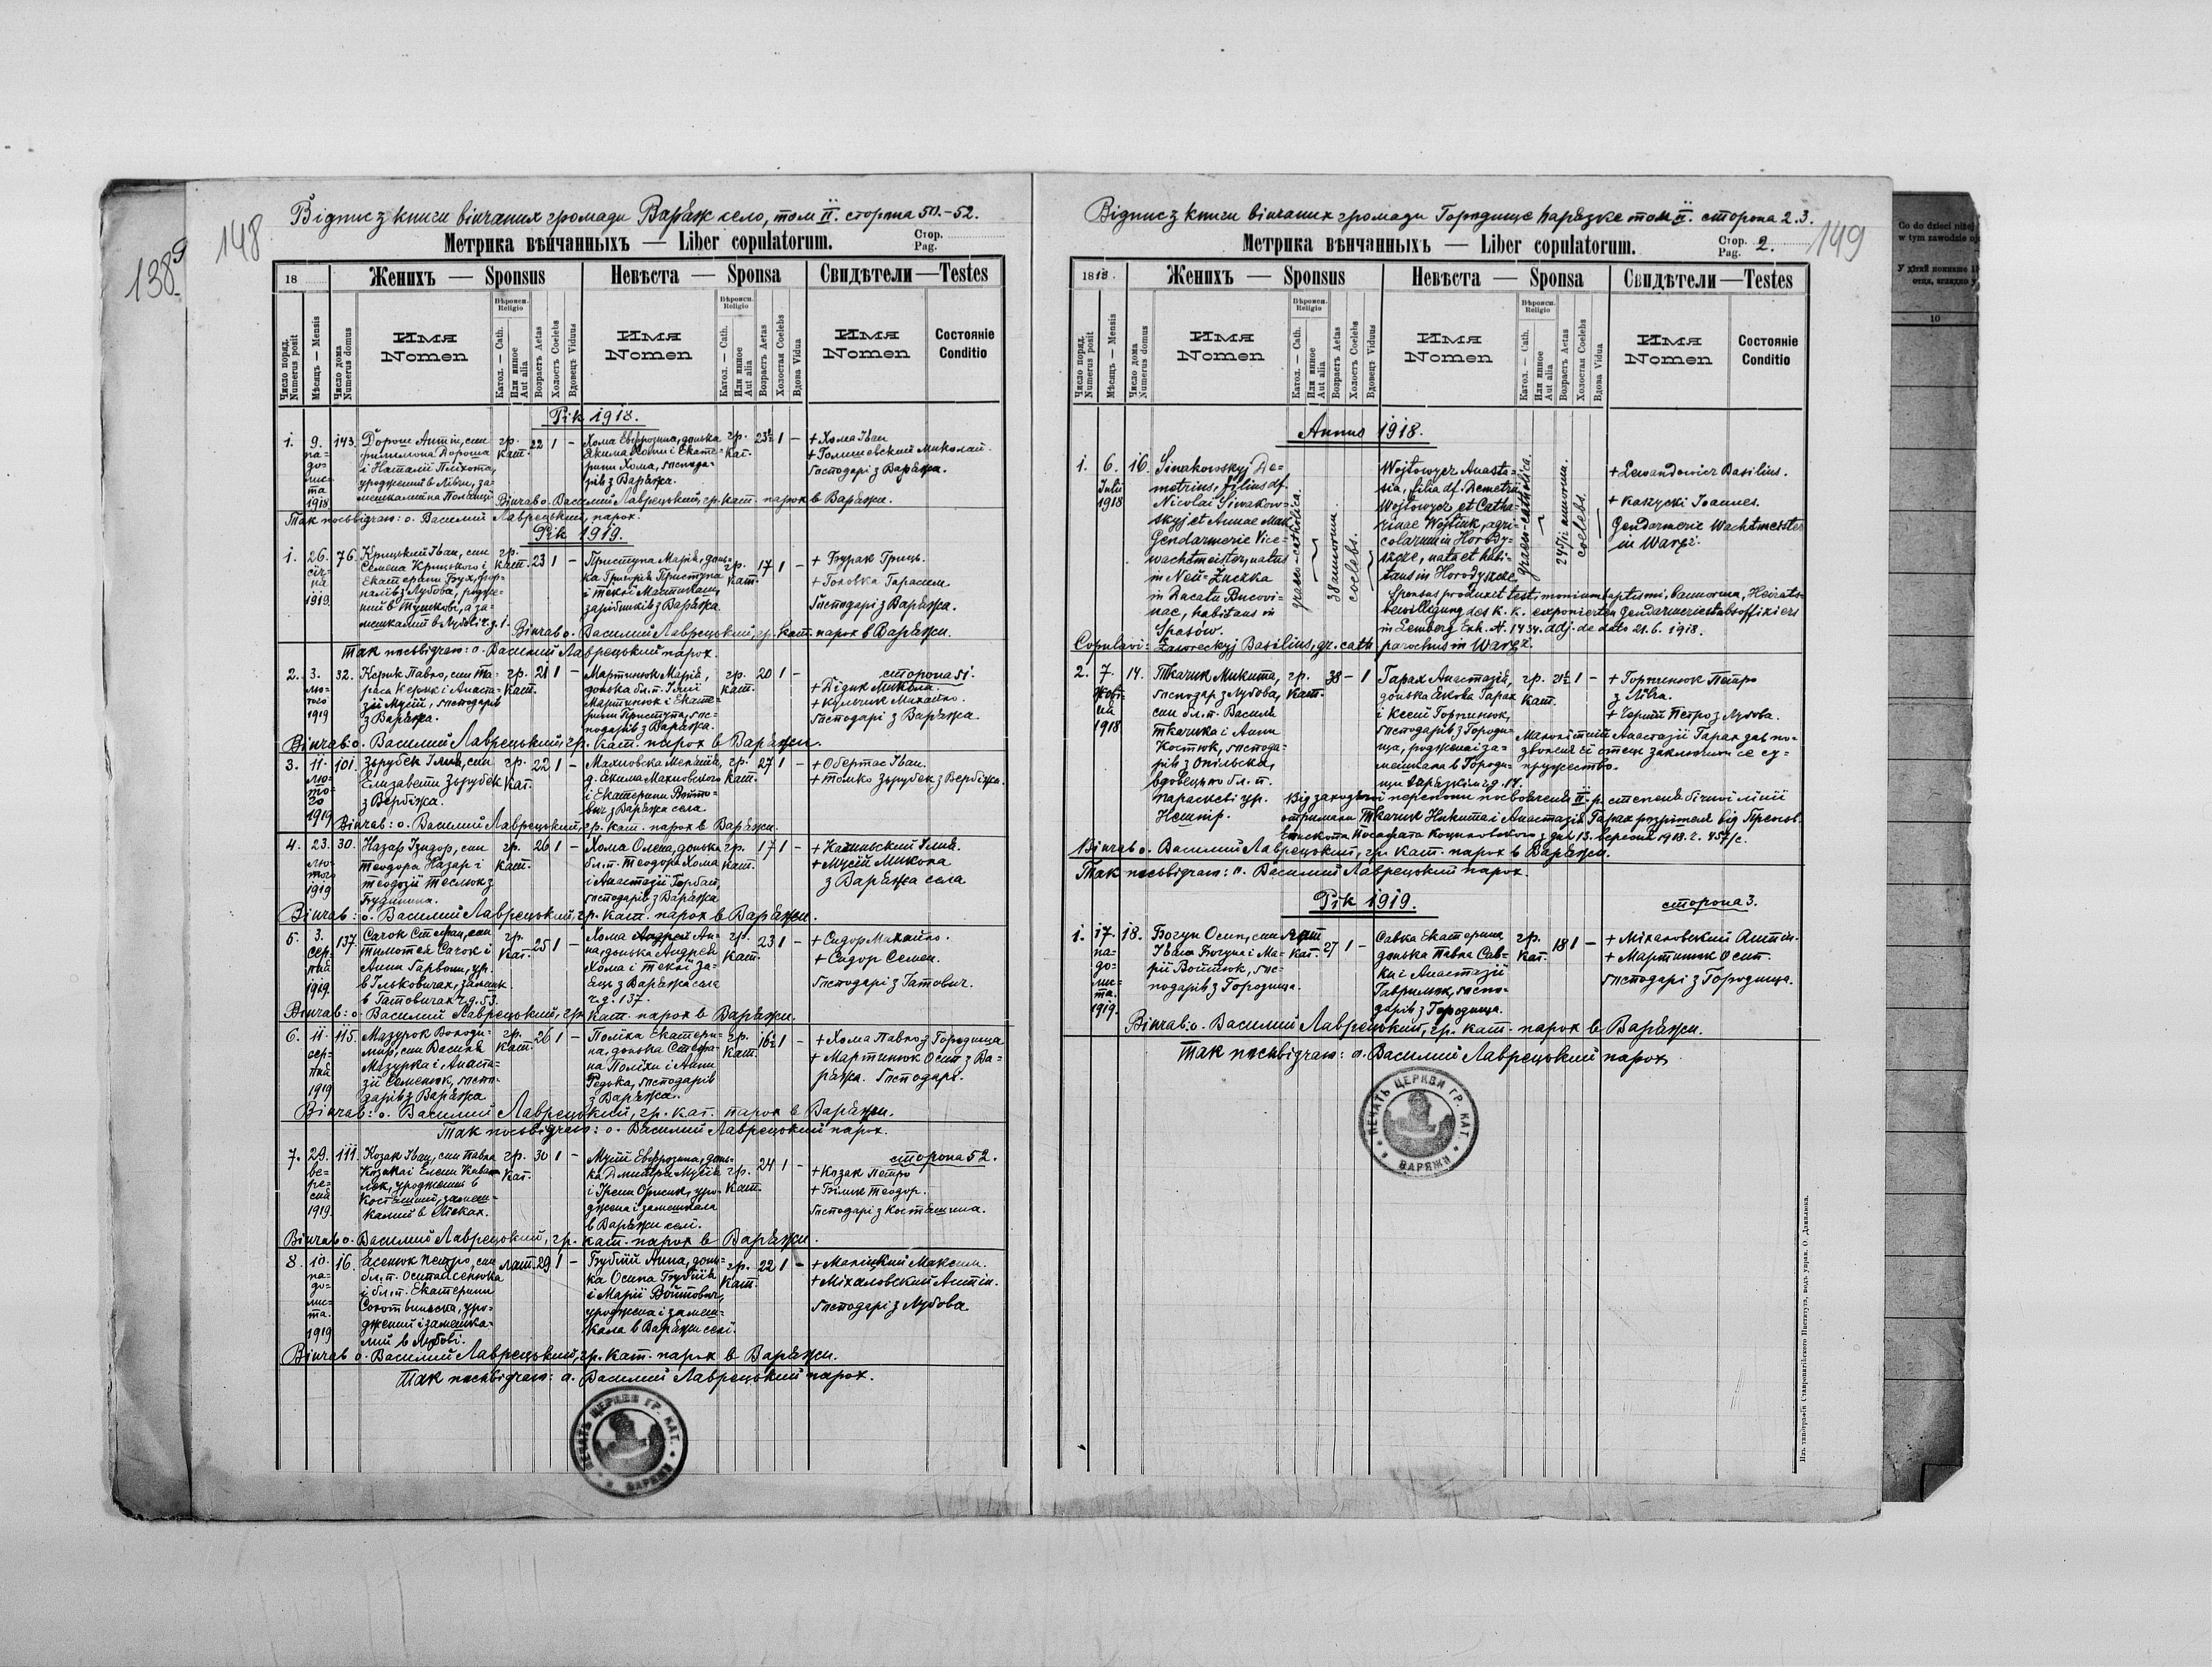 138
9
148
Відпис з книги вінчаних громади Варяж село, том ІІ. сторона 50.-52.
Метрика вѣнчанныхъ — Liber copulatorum.
Стор.
Pag.
18
Женихъ — Sponsus
Невѣста — Sponsa
Свидѣтели — Testes
Число поряд.
Numerus posit
Мѣсяцъ — Mensis
Число дома
Numerus domus
Имя
Nomen
Вѣроисп.
Religio
Катол. — Cath.
Или инное
Aut alia
Возрастъ Aetas
Холостъ Coelebs
Вдовецъ Vidua
Имя
Nomen
Вѣроисп.
Religio
Катол. — Cath.
Или инное
Aut alia
Возрастъ Aetas
Холостая Coelebs
Вдова Vidua
Имя
Nomen
Состояніе
Conditio
Рік 1918.
1. 9. па-до-лис-та 1918 143
Дорош Антін, син
Филимона Дороша
і Наталії Пліхота,
гр. кат. 22 1 –
Хома Евфрозина, донька
Якима Хоми і Екате-
рини Хома, господа-
рів з Варяжа.
гр. кат. 23½ 1 –
+ Хома Іван
+ Голишевский Миколай.
Господарі з Варяжа.
Вінчав о. Василий Лаврецький, гр. кат. парох в Варяжи.
Так посьвідчаю: о. Василий Лаврецький, парох.
Рік 1919.
1. 26. січ-ня 1919. 76
Крицький Іван, син
Семена Крицького і
гр. кат. 23 1 –
Приступа Марія, донь-
ка Григорія Приступа
і Теклі Мартинюк,
зарібників з Варяжа.
гр. кат. 17 1 –
+ Бурак Гриць.
+ Головка Гарасим
Господарі з Варяжа.
Вінчав о. Василий Лаврецький, гр. кат. парох в Варяжи.
Так посьвідчаю: о. Василий Лаврецький парох.
сторона 51.
2. 3. лю-того 1919 32.
Керик Павло, син Та-
раса Керик і Анаста-
зії Мусій, господарів
з Варяжа.
гр. кат. 21 1 –
Мартинюк Марія,
донька бл. п. Ілії
Мартинюк і Екате-
рини Приступа, гос-
подарів з Варяжа.
гр. кат. 20 1 –
+ Дідик Микола.
+ Кульчик Михайло.
Господарі з Варяжа.
Вінчав: о. Василий Лаврецький, гр. кат. парох в Варяжи.
3. 11. лю-то-го 1919 101.
Зьрубек Ілия, син
Елизавети Зьрубек
з Вербіжа.
гр. кат. 22 1 –
Махновска Меланія,
д. Якима Махновского
і Екатерини Войто-
вич з Варяжа села.
гр. кат. 27 1 –
+ Обертас Іван.
+ Томко Зьрубек, з Вербіжа.
Вінчав: о. Василий Лаврецький, гр. кат. парох в Варяжи.
4. 23. лю-того 1919 30.
Назар Ізидор, син
Теодора Назар і
Теодозії Теслюк з
Будинина.
гр. кат. 26 1 –
Хома Олена, донька
бл. п. Теодора Хома
і Анастазії Горбай,
господарів з Варяжа
гр. кат. 17 1 –
+ Мусій Микола
з Варяжа села
Вінчав: о. Василий Лаврецький, гр. кат. парох в Варяжи.
5. 3. сер-пня 1919. 137.
Сачок Стефан, син
Тимотея Сачок і
в Ільковичах, замешк.
в Гатовичах ч. д. 53.
гр. кат. 25 1 –
Хома Андрей Ан-
на, донька Андрея
Хома і Теклі За-
яць з Варяжа села
ч. д. 137.
гр. кат. 23 1 –
+ Сидор Михайло.
+ Сидор Семен.
Господарі з Гатович.
Вінчав: о. Василий Лаврецький, гр. кат. парох в Варяжи.
6. 11. сер-пня 1919 115.
Мазурок Володи-
мир, син Василя
Мазурка і Анаста-
зії Семенюк, госпо-
дарів з Варяжа
гр. кат. 26 1 –
Поліха Екатери-
на, донька Стефа-
на Поліхи і Анни
Редька, господарів
з Варяжа.
гр. кат. 16½ 1 –
+ Хома Павло з Городища
+ Мартинюк Осип з Ва-
ряжа. Господарі.
Вінчав: о. Василий Лаврецький, гр. кат. парох в Варяжи.
Так посьвідчаю: о. Василий Лаврецький парох.
сторона 52.
7. 29. ве-ре-сня 1919. 111.
Козак Іван, син Павла
уроджений в
Костяшині, замеш-
калий в Лісках.
гр. кат. 30 1 –
Мусій Евфрозина, донь-
ка Дмитра Мусія
і Ірени Орисик, уро-
джена і замешкала
в Варяжи селі.
гр. кат. 24 1 –
+ Козак Петро
+ Білик Теодор.
Господарі з Костяшина.
Вінчав о. Василий Лаврецький, гр. кат. парох в Варяжи.
8. 10. па-до-лис-та. 1919 16.
Ясенюк Петро, син
бл. п. Осипа Ясенюка
і бл. п. Екатерини
уро-
джений і замешка-
лий в Лубові.
лат. 29 1 –
Бубній Анна, донь-
ка Осипа Бубнія
і Марії Войтович,
уроджена і замеш-
кала в Варяжи селі.
гр. кат. 22 1 –
+ Маліцкий Максим.
+ Міхаловский Антін.
Господарі з Лубова
Вінчав о. Василий Лаврецький, гр. кат. парох в Варяжи.
Так посьвідчаю: о. Василий Лаврецький парох.
ПЕЧАТЬ ЦЕРКВИ ГР. КАТ. В ВАРЯЖИ
149
Відпис з книги вінчаних громади Городище варязке том ІІ. сторона 2.3.
Метрика вѣнчанныхъ — Liber copulatorum.
Стор.
Pag. 2.
1818.
Женихъ — Sponsus
Невѣста — Sponsa
Свидѣтели — Testes
Число поряд.
Numerus posit
Мѣсяцъ — Mensis
Число дома
Numerus domus
Имя
Nomen
Вѣроисп.
Religio
Катол. — Cath.
Или инное
Aut alia
Возрастъ Aetas
Холостъ Coelebs
Вдовецъ Vidua
Имя
Nomen
Вѣроисп.
Religio
Катол. — Cath.
Или инное
Aut alia
Возрастъ Aetas
Холостая Coelebs
Вдова Vidua
Имя
Nomen
Состояніе
Conditio
Annus 1918.
1. 6. Julii 1918 16.
Siwakowskyj De-
metrius, filius df.
Nicolai Siwakow-
skyj et Annae Mak
Gendarmerie Vice-
wachtmeister, natus
in Neu-Zuczka
in Ducatu Bucovi-
nae, habitans in
Spasów.
graeco-catholica.
38 annorum.
coelebs.
Wojtowycz Anasta-
sia, filia df. Demetrii
Wojtowycz et Catha-
rinae Wojtiuk, agri-
colarum in Horody-
szcze, nata et habi-
tans in Horodyszcze.
graeco-catholica.
coelebs.
+ Lewandowicz Basilius.
+ Kaszycki Joannes.
Gendarmerie Wachtmeister
in Waręż.
Sponsus produxit testimonium baptismi, bannorum, Heirats-
bewilligung des k. k. exponierten Gendarmeriestabsoffiziers
in Lemberg Exh. N. 1434. adj. de dato 21.6.1918.
Copulavi: Lawreckyj Basilius, gr. cath. parochus in Waręż.
2. 7. жов-ня 1918 14.
Ткачик Микита,
господар з Лубова,
син бл. п. Василя
Ткачика і Анни
Костюк, господа-
рів з Опільска,
вдовець по бл. п.
Параскеві ур.
гр. кат. 38 – 1
Гарах Анастазія,
донька Якова Гарах
і Ксенї Горпинюк,
господарів з Городи-
ща, роджена і за-
мешкала в Городи-
щи варязкім ч. д. 14.
гр. кат. 21½ 1 –
+ Горпинюк Петро
з Лівча.
+ Чорний Петро з Лубова.
Малолітній Анастазії Гарах дав по-
зволенє єї отець заключити се су-
пружество.
Від заходячої перепони посвоячення ІІ. р. степеня бічної лінії
отримали Ткачик Микита і Анастазія Гарах розрішенє від Преосв.
Епископа Йосафата Коциловского з дня 13. вересня 1918. ч. 457/с.
Вінчав о. Василий Лаврецький, гр. кат. парох в Варяжи.
Так посьвідчаю: о. Василий Лаврецький парох.
Рік 1919.
сторона 3.
1. 17. па-до-лис-та. 1919. 18.
Богун Осип, син
Івана Богуна і Ма-
рії Войтюк, гос-
подарів з Городища.
кат. 27 1 –
Савка Екатерина,
донька Павла Сав-
ки і Анастазії
Гаврилюк, госпо-
дарів з Городища.
гр. кат. 18 1 –
+ Міхаловський Антін.
+ Мартинюк Осип.
Господарі з Городища.
Вінчав: о. Василий Лаврецький, гр. кат. парох в Варяжи.
Так посьвідчаю: о. Василий Лаврецький парох
ПЕЧАТЬ ЦЕРКВИ ГР. КАТ. ВАРЯЖИ
Изъ типографіи Ставропигійского Института, подъ управ. О. Данилюка.
Co do dzieci niżej
w tym zawodzie oj
10